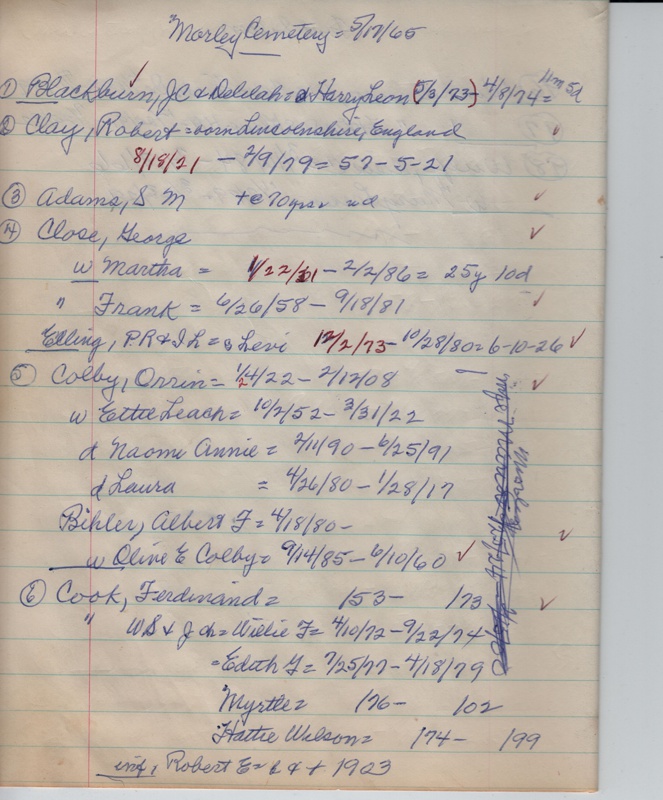 Morley Cemetery = 5/17/65
1) Blackburn, JC & Delilah = Harry Leon (5/3/73) - 4/8/74 = 11m 5d
2) Clay, Robert = born Lincolnshire, England
8/18/21 - 2/9/79 = 57-5-21
3) Adams, S M
4) Close, George
w Martha = 1/22/61 - 2/2/86 = 25y 10d
" Frank = 6/26/58 - 9/18/81
Elling, P.R & J L = s Levi 12/2/73 - 10/28/80 = 6-10-26
5) Colby, Orrin = /22 - 2/12/08
w Ettie Leach = 10/2/52 - 3/31/22
d Naomi Annie = 2/11/90 - 6/25/91
d Laura = 4/26/80 - 1/28/17
Bihler, Albert F = 4/18/80 -
w Oline E Colby = 9/14/85 - 6/10/60
6) Cook, Ferdinand = 153 - 173
" W S & J ch = Willie F = 4/10/72 - 9/22/74
= Edith G = 7/25/77 - 4/18/79
Myrtle = 176 - 102
Hattie Wilson = 174 - 199
inf, Robert E = b & + 1903